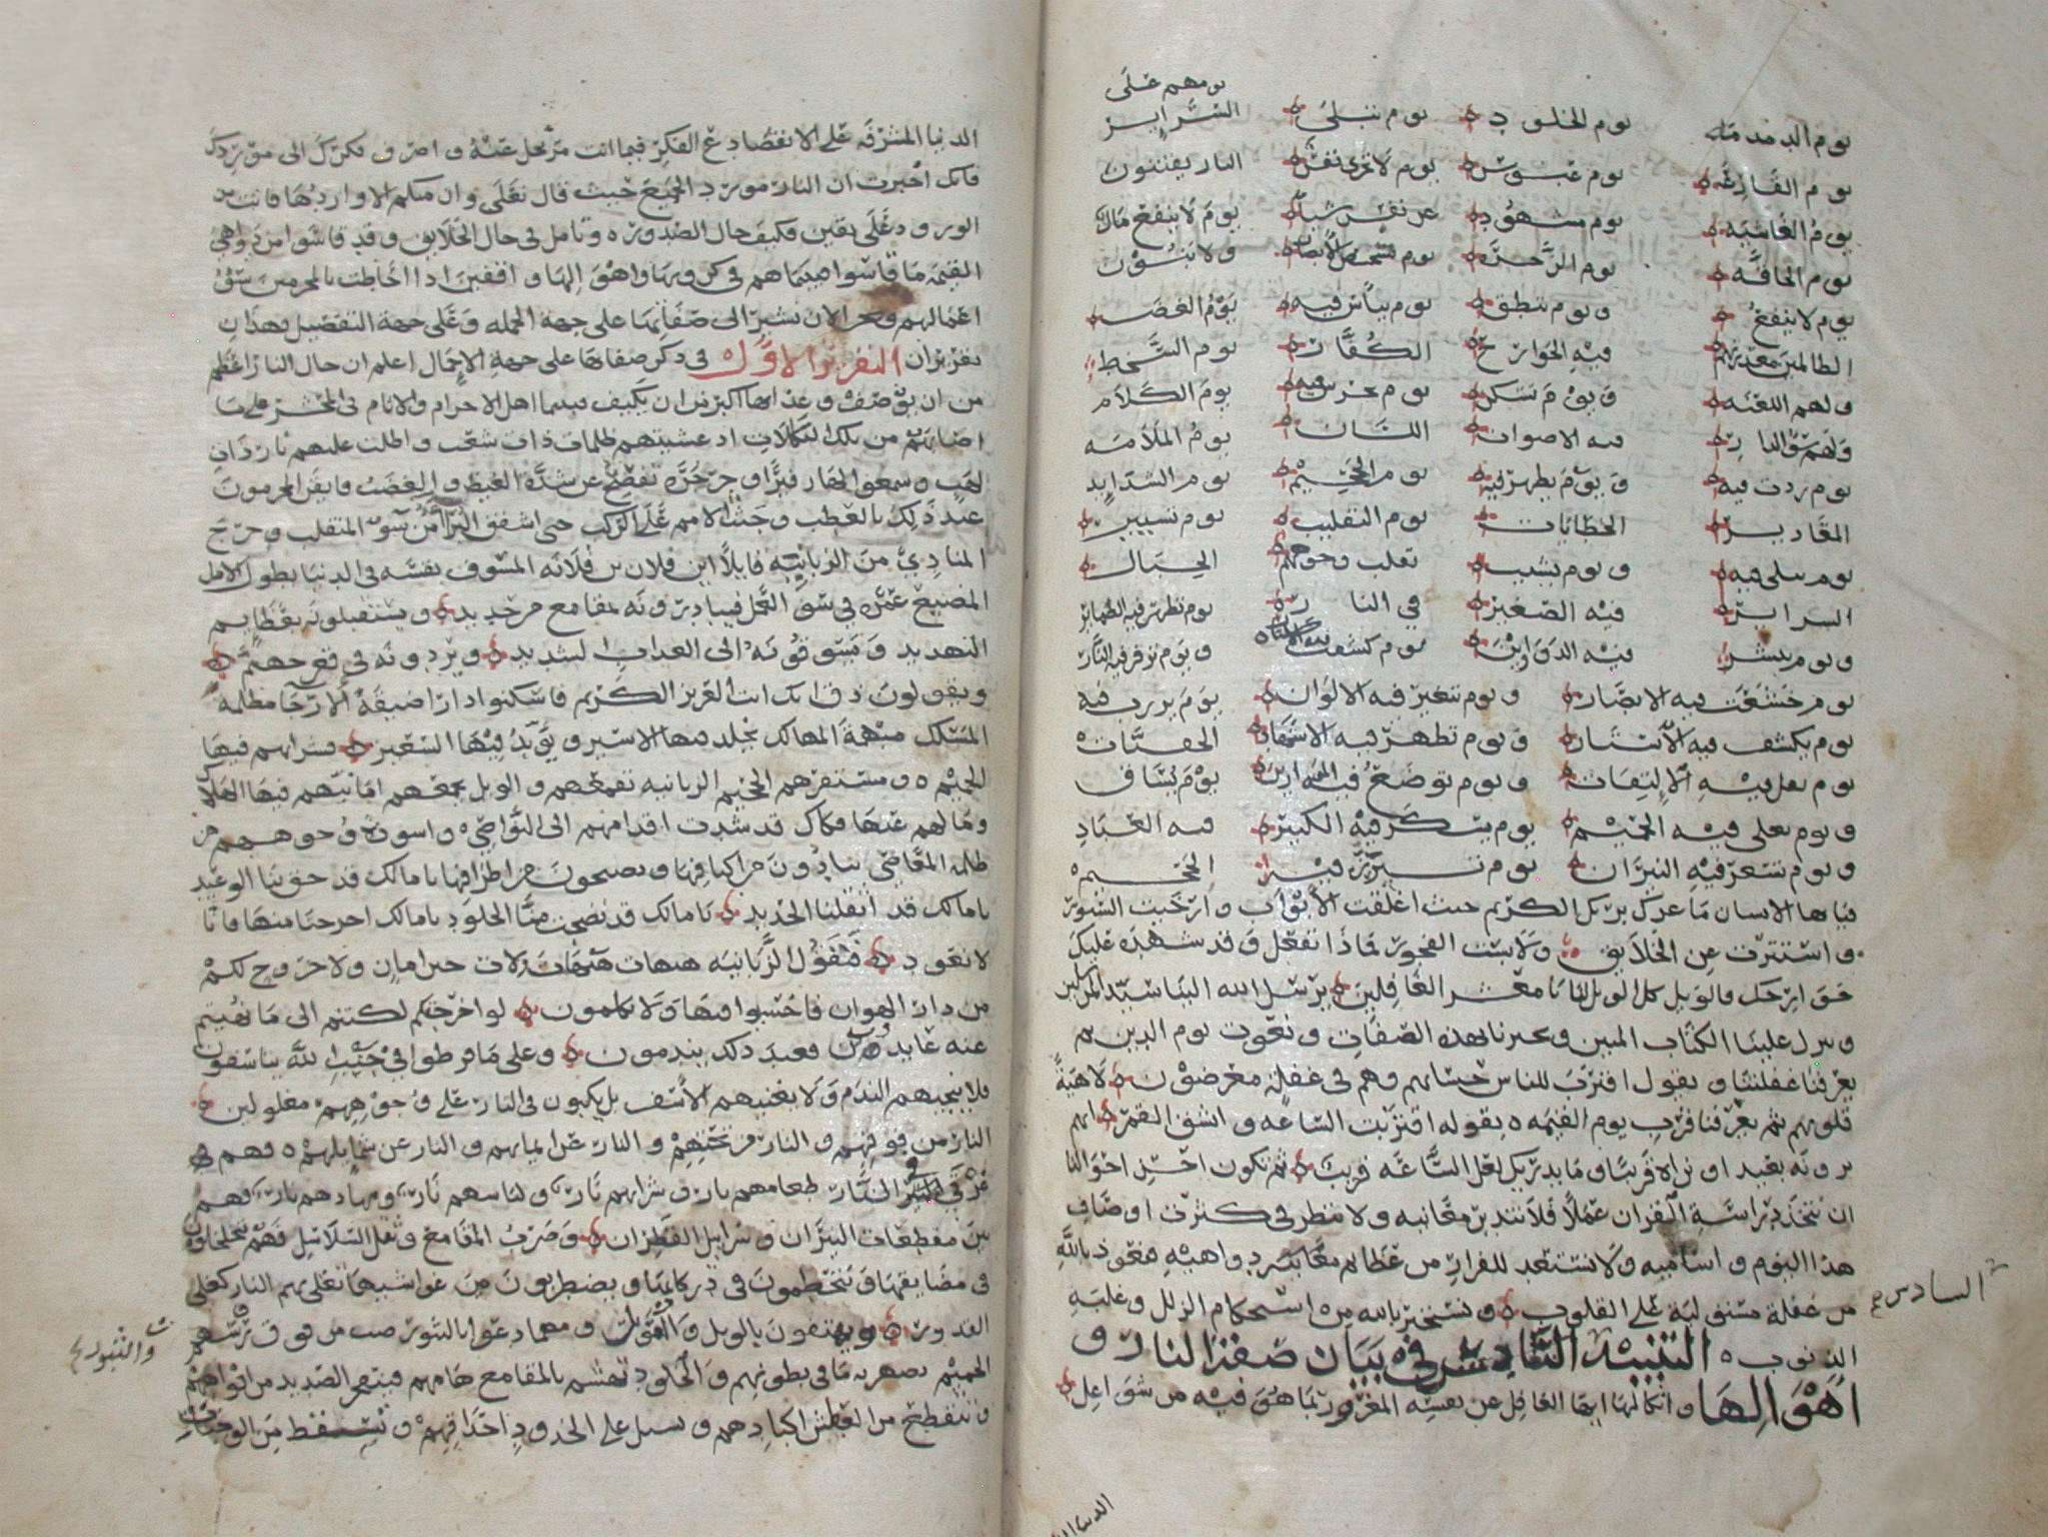 يومهم على
يوم الدمدمة يوم الخلود يوم تبلى السراير
يوم القارعة يوم عبوس يوم لا تجزى نفس النار يفتنون
يوم الغاشية يوم مشهود عن نفس شيا يوم لا ينفع مال
يوم الحاقة يوم الرجة يوم تشخص الابصار ولا بنون
يوم لا ينفع ويوم ينطق يوم يباس فيه يوم الغضب
الظالمين معذرتهم فيه الجوارح الكفار يوم السخط
ولهم اللعنة ويوم تسكن يوم يخرس فيه يوم الكلام
ولهم سو الدار فيه الاصوات اللسان يوم الملامة
يوم ردت فيه ويوم يظهر فيه يوم الجحيم يوم الشدايد
المقادير الخطايات يوم التقليب يوم تسيير
يوم تبلى فيه ويوم يشيب تقلب وجوههم الجبال
السراير فيه الصغير في النار يوم تظهر فيه الضماير
ويوم ينشر فيه الدواوين يوم كشفت فيه الاستار ويوم توقر فيه النار
يوم خشعت فيه الابصار ويوم تتغير فيه الالوان يوم يرى فيه
يوم يكشف فيه ويوم تظهر فيه
يوم يقل فيه الالتفات ويوم توضع فيه الموازين يوم يساق
ويوم يغلى فيه الحميم يوم يسكر فيه الكبير فيه العباد
ويوم تسعر فيه النيران يوم فيه الجحيم
فياها الانسان ما غرك بربك الكريم حيث اغلقت الابواب وارخيت الستور
واستترت عن الخلايق ولابست الفجور فماذا تفعل وقد شهدت عليك
جوارحك فالويل كل الويل لنا يا معشر الغافلين يرسل الله الينا سيد المرسلين
وينزل علينا الكتاب المبين ويخبرنا بهذه الصفات ونعوت يوم الدين ثم
يعرفنا غفلتنا ويقول اقترب للناس حسابهم وهم في غفلة معرضون لاهية
قلوبهم ثم يعرفنا قرب يوم القيمة بقوله اقتربت الساعة وانشق القمر انهم
يرونه بعيدا ونراه قريبا وما يدريك لعل الساعة قريب ثم تكون احسن احوالنا
ان نتخذ دراسة القران عملا فلا نتدبر معانيه ولا ننظر في كثرت اوصاف
هذا اليوم واساميه ولا نستعد للفرار من دواهيه فنعوذ بالله
من غفلة مستولية على القلوب ونستجير بالله من استحكام الزلل وغلبة
السادس
الذنوب التنبيه السادس في بيان صفة النار و
اهوالها وانكالها ايها الغافل عن نفسه المغرور بما هو فيه من شواغل
الدنيا المشرفة على الانقضا دع الفكر فيما انت مرتحل عنه واصرف فكرك الى موردك
فانك اخبرت ان النار مورد الجميع حيث قال تعالى وان منكم الا واردها فانت من
الورود على يقين فكيف حال الصدور وتامل في حال الخلايق وقد قاسوا من دواهي
القيمة ما قاسوا فبينما هم في كربها واهوالها واقفين اذا احاطت بالمجرمين سؤ
اعمالهم ونحن الان نشير الى صفاتها على جهة الجملة وعلى جهة التفصيل فهذان
تقريران التقرير الاول في ذكر صفاتها على جهة الاجمال اعلم ان حال النار اعظم
من ان يوصف وعذابها اكبر من ان يكيف فبينما اهل الاجرام والاثام في المحشر على ما
اصابهم من تلك النكالات اذ غشيتهم ظلمات ذات شعب واطلت عليهم نار ذات
لهب وسمعوا لها زفيرا وجرجرة تفصح عن شدة الغيظ والغضب فايقن المجرمون
عند ذلك بالعطب وجثت الامم على الركب حتى اشفق البرآ من سو المنقلب وخرج
المنادي من الزبانية قايلا اين فلان بن فلانه المسوف نفسه في الدنيا بطول الامل
المضيع عمره في سؤ العمل فيبادرونه بمقامع من حديد ويستقبلونه بعظايم
التهديد ويسوقونه الى العذاب الشديد ويردونه في قعر جهنم
ويقولون ذق انك انت العزيز الكريم فاسكنوا دارا ضيقة الارجا مظلمة
المسلك مبهمة المهالك يخلد فيها الاسير ويوقد فيها السعير شرابهم فيها
الحميم ومستقرهم الجحيم الزبانية تقمعهم والويل يجمعهم امانيهم فيها الهلاك
وما لهم عنها فكاك قد شدت اقدامهم الى النواصي واسودت وجوههم من
ظلمة المعاصي ينادون من اكنافها ويصيحون من اطرافها يا مالك قد حق بنا الوعيد
يا مالك قد اثقلنا الحديد يا مالك قد نضجت منا الجلود يا مالك اخرجنا منها فانا
لا نعود فتقول الزبانية هيهات هيهات لات حين امان ولا خروج لكم
من دار الهوان فاخسوا فيها ولا تكلمون لو اخرجتكم لكنتم الى ما نهيتم
عنه عايدون فعند ذلك يندمون وعلى ما فرطوا في جنب الله يتاسفون
فلا ينجيهم الندم ولا يغنيهم الاسف بل يكبون في النار على وجوههم مغلولين
النار من فوقهم والنار من تحتهم والنار عن ايمانهم والنار عن شمايلهم فهم
غرقى في النار طعامهم نار وشرابهم نار ولباسهم نار ومهادهم نار فهم
بين مقطعات النيران وسرابيل القطران وضرب المقامع وثقل السلاسل فهم يتجلجلون
في مضايقها ويتحطمون في دركاتها ويضطربون بين غواشيها تغلي بهم النار كغلي
القدور ويهتفون بالويل والعويل ومهما دعوا بالثبور صب من فوق رؤسهم
والثبور
الحميم يصهر به ما في بطونهم والجلود تهشم بالمقامع هامهم فيتفجر الصديد من افواههم
وتتقطع من العطش اكبادهم وتسيل على الخدود احداقهم وتسقط من الوجنات